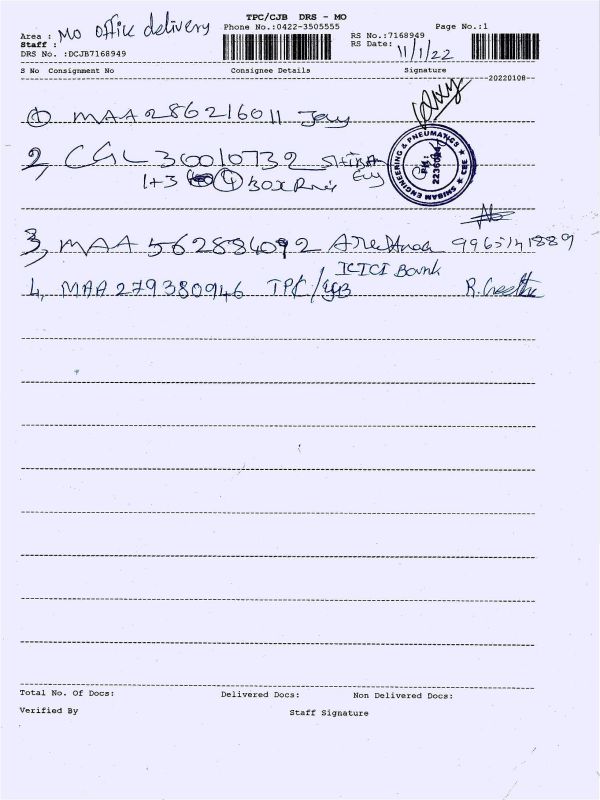 TPC/CJB DRS - MO
Area : Mo office delivery Phone No.:0422-3505555 Page No.:1
Staff : RS No.:7168949
DRS No. :DCJB7168949 RS Date: 11/1/22
S No Consignment No Consignee Details Signature
20220108
① MAA286216011 Jay
2, CGL 30010732
1+3 ④ Box
SHIBAM ENGINEERING & PNEUMATICS ★ CBE ★
PH:
3, MAA 562884092
ICICI Bank
4, MAA 279380946 TPC/CJB R. Geetha
Total No. Of Docs: Delivered Docs: Non Delivered Docs:
Verified By Staff Signature